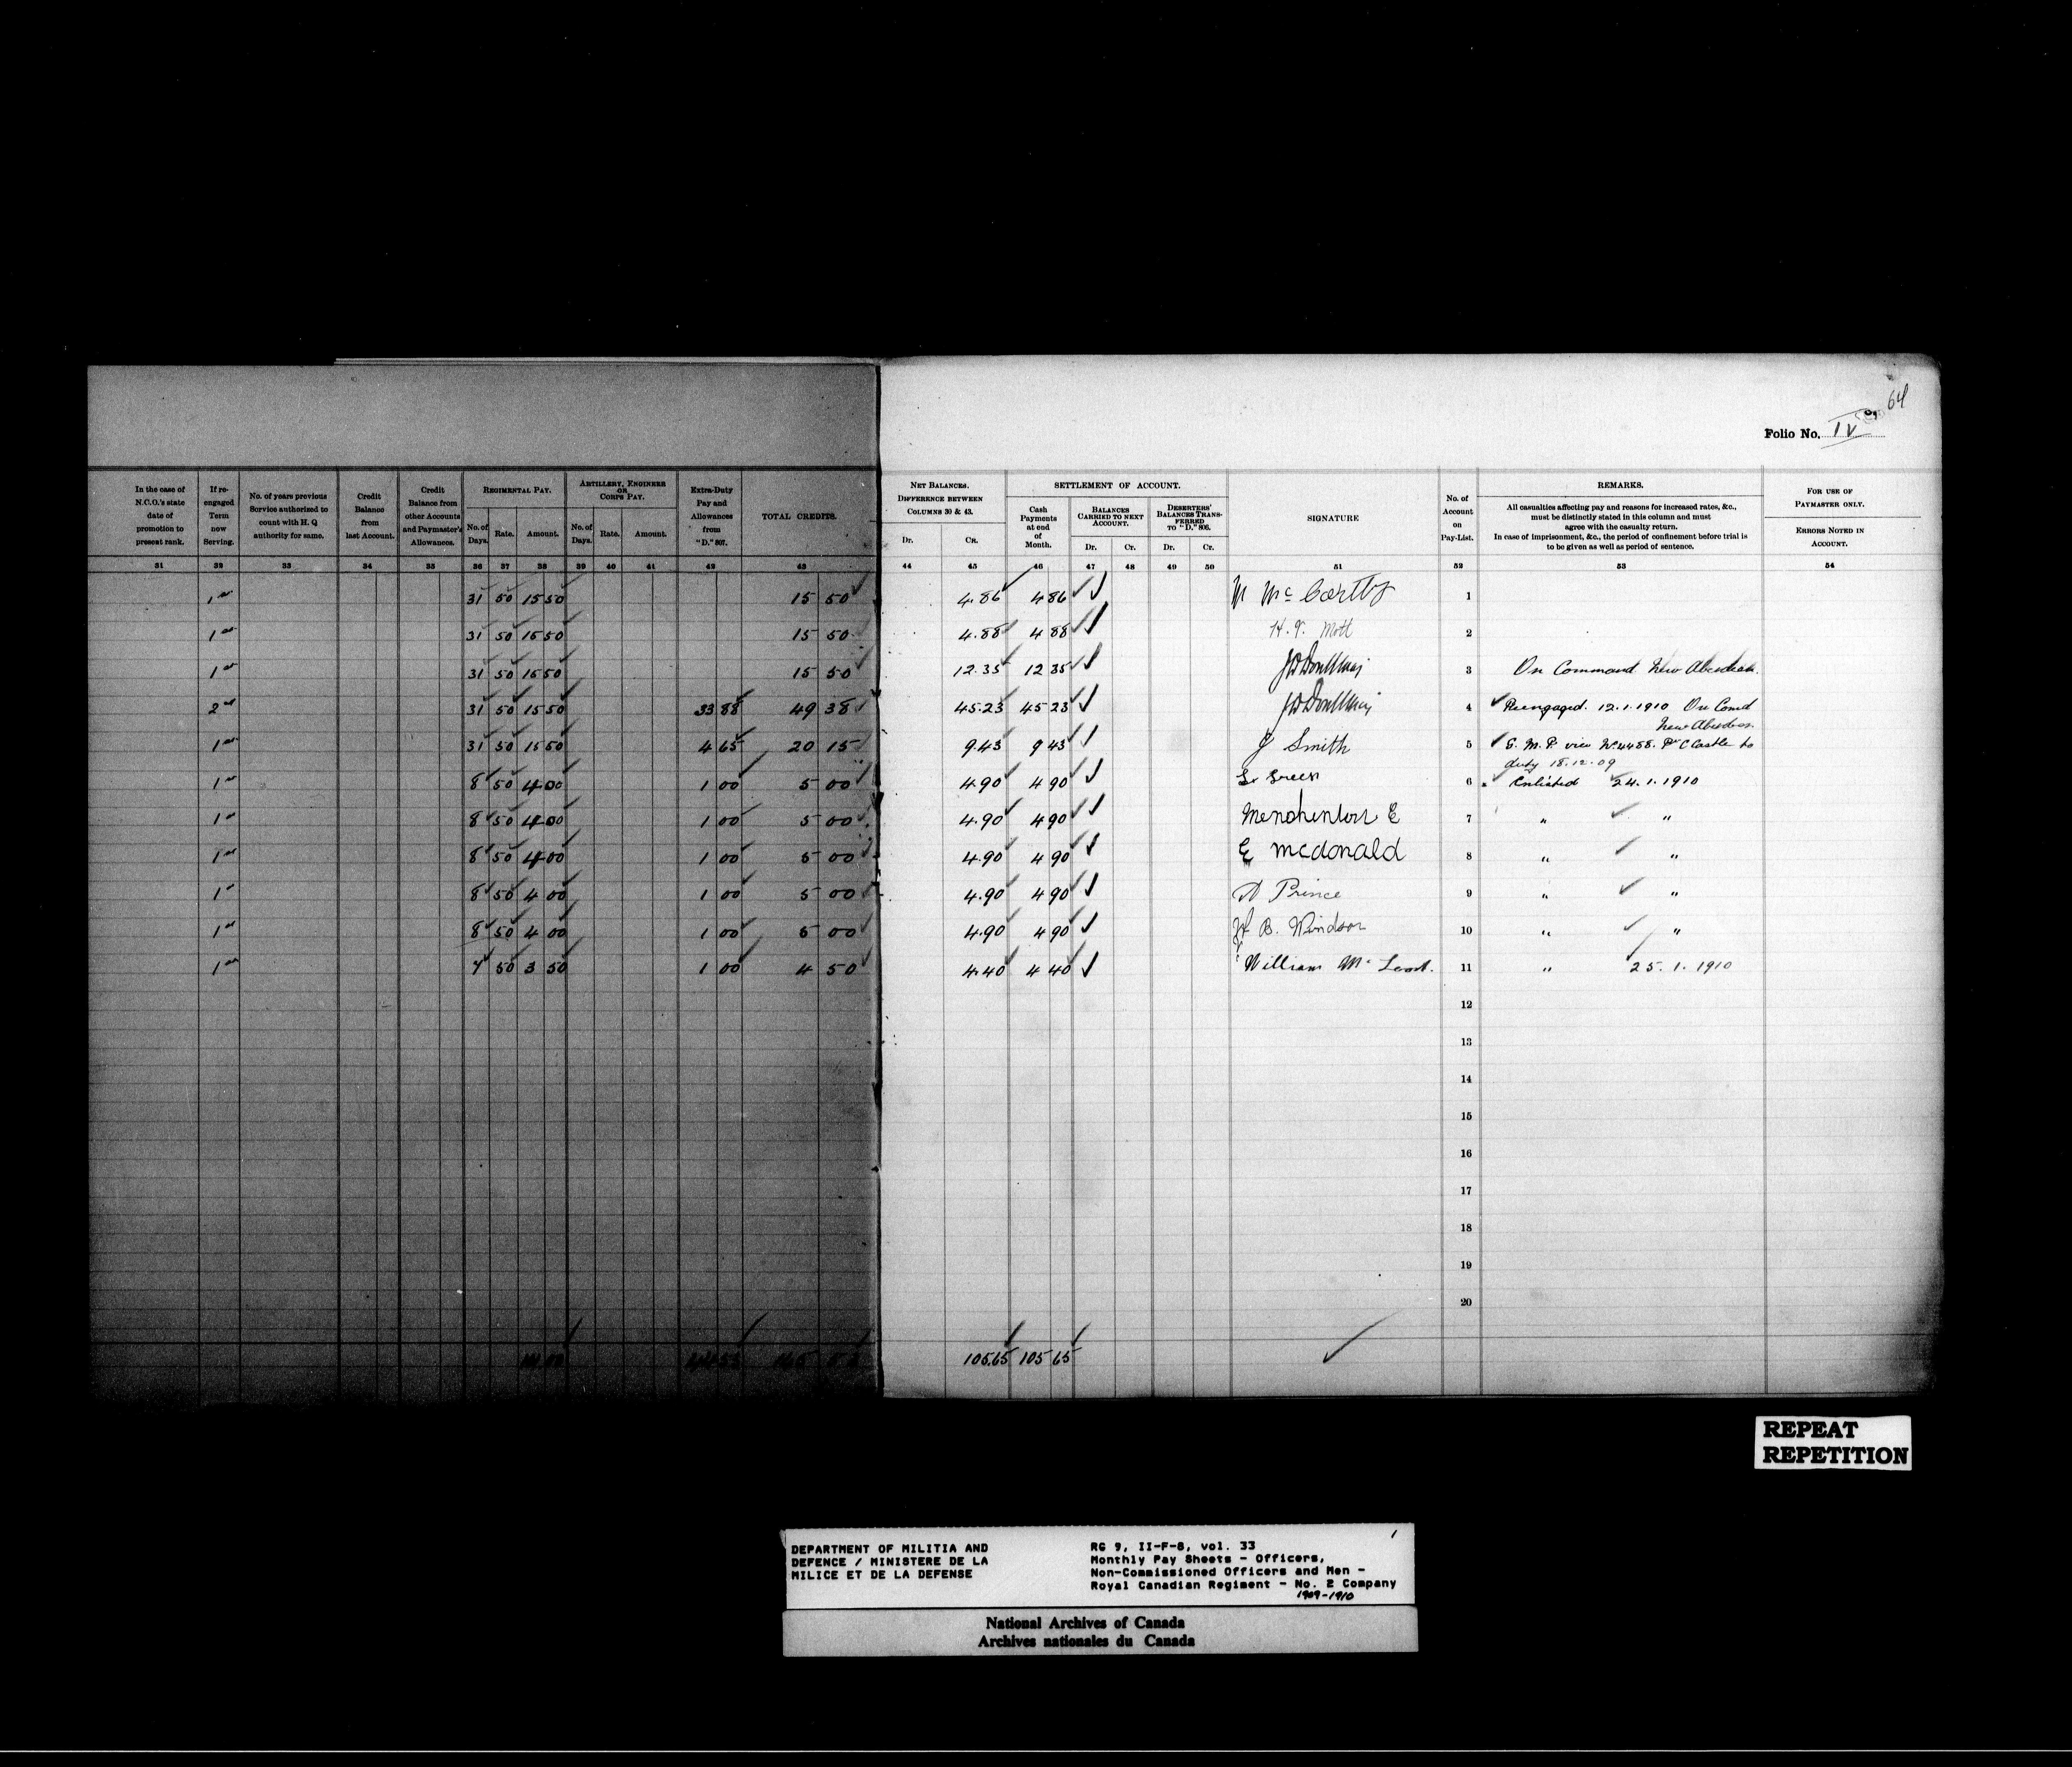 64
Folio No. IV
In the case of N.C.O.'s state date of promotion to present rank.
If re-engaged Term now Serving.
No. of years previous Service authorized to count with H. Q authority for same.
Credit Balance from last Account.
Credit Balance from other Accounts and Paymaster's Allowances.
REGIMENTAL PAY.
No. of Days. Rate. Amount.
ARTILLERY, ENGINEER OR CORPS PAY.
No. of Days. Rate. Amount.
Extra-Duty Pay and Allowances from "D." 807.
TOTAL CREDITS.
NET BALANCES.
DIFFERENCE BETWEEN COLUMNS 30 & 43.
Dr. Cr.
SETTLEMENT OF ACCOUNT.
Cash Payments at end of Month.
BALANCES CARRIED TO NEXT ACCOUNT.
Dr. Cr.
DESERTERS' BALANCES TRANSFERRED TO "D." 806.
Dr. Cr.
SIGNATURE
No. of Account on Pay-List.
REMARKS.
All casualties affecting pay and reasons for increased rates, &c.,
must be distinctly stated in this column and must
agree with the casualty return.
In case of imprisonment, &c., the period of confinement before trial is
to be given as well as period of sentence.
FOR USE OF PAYMASTER ONLY.
ERRORS NOTED IN ACCOUNT.
31 32 33 34 35 36 37 38 39 40 41 42 43 44 45 46 47 48 49 50 51 52 53 54
1st 31 50 15 50 15 50 4.86 4 86 M McCarthy 1
1st 31 50 15 50 15 50 4.88 4 88 Mott 2
1st 31 50 15 50 15 50 12.35 12 35 3 On Command New Aberdeen.
2nd 31 50 15 50 33 88 49 38 45.23 45 23 4 Reengaged. 12.1.1910 On Comd
New Aberdeen.
1st 31 50 15 50 4 65 20 15 9.43 9 43 J Smith 5 G. M. P. vice No 4488. Pte C Castle to
duty 18.12.09
1st 8 50 4 00 1 00 5 00 4.90 4 90 Green 6 Enlisted 24.1.1910
1st 8 50 4 00 1 00 5 00 4.90 4 90 7 " "
1st 8 50 4 00 1 00 5 00 4.90 4 90 E mcdonald 8 " "
1st 8 50 4 00 1 00 5 00 4.90 4 90 A Prince 9 " "
1st 8 50 4 00 1 00 5 00 4.90 4 90 B. Windsor 10 " "
1st 7 50 3 50 1 00 4 50 4.40 4 40 William Mc 11 " 25.1.1910
12
13
14
15
16
17
18
19
20
105.65 105 65
REPEAT
REPETITION
DEPARTMENT OF MILITIA AND
DEFENCE / MINISTERE DE LA
MILICE ET DE LA DEFENSE
1
RG 9, II-F-8, vol. 33
Monthly Pay Sheets - Officers,
Non-Commissioned Officers and Men -
Royal Canadian Regiment - No. 2 Company
1909-1910
National Archives of Canada
Archives nationales du Canada